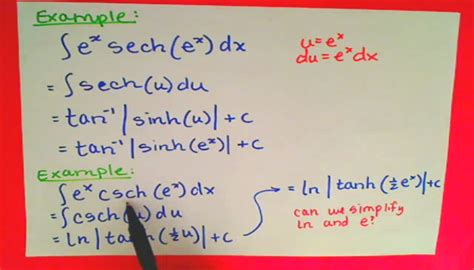 Example:
∫e^x sech(e^x)dx
u=e^x
du=e^x dx
=∫sech(u)du
=tan^-1|sinh(u)|+c
=tan^-1|sinh(e^x)|+c
Example:
∫e^x csch(e^x)dx
=∫csch(u)du
=ln|tanh(½u)|+c
=ln|tanh(½e^x)|+c
can we simplify
ln and e?